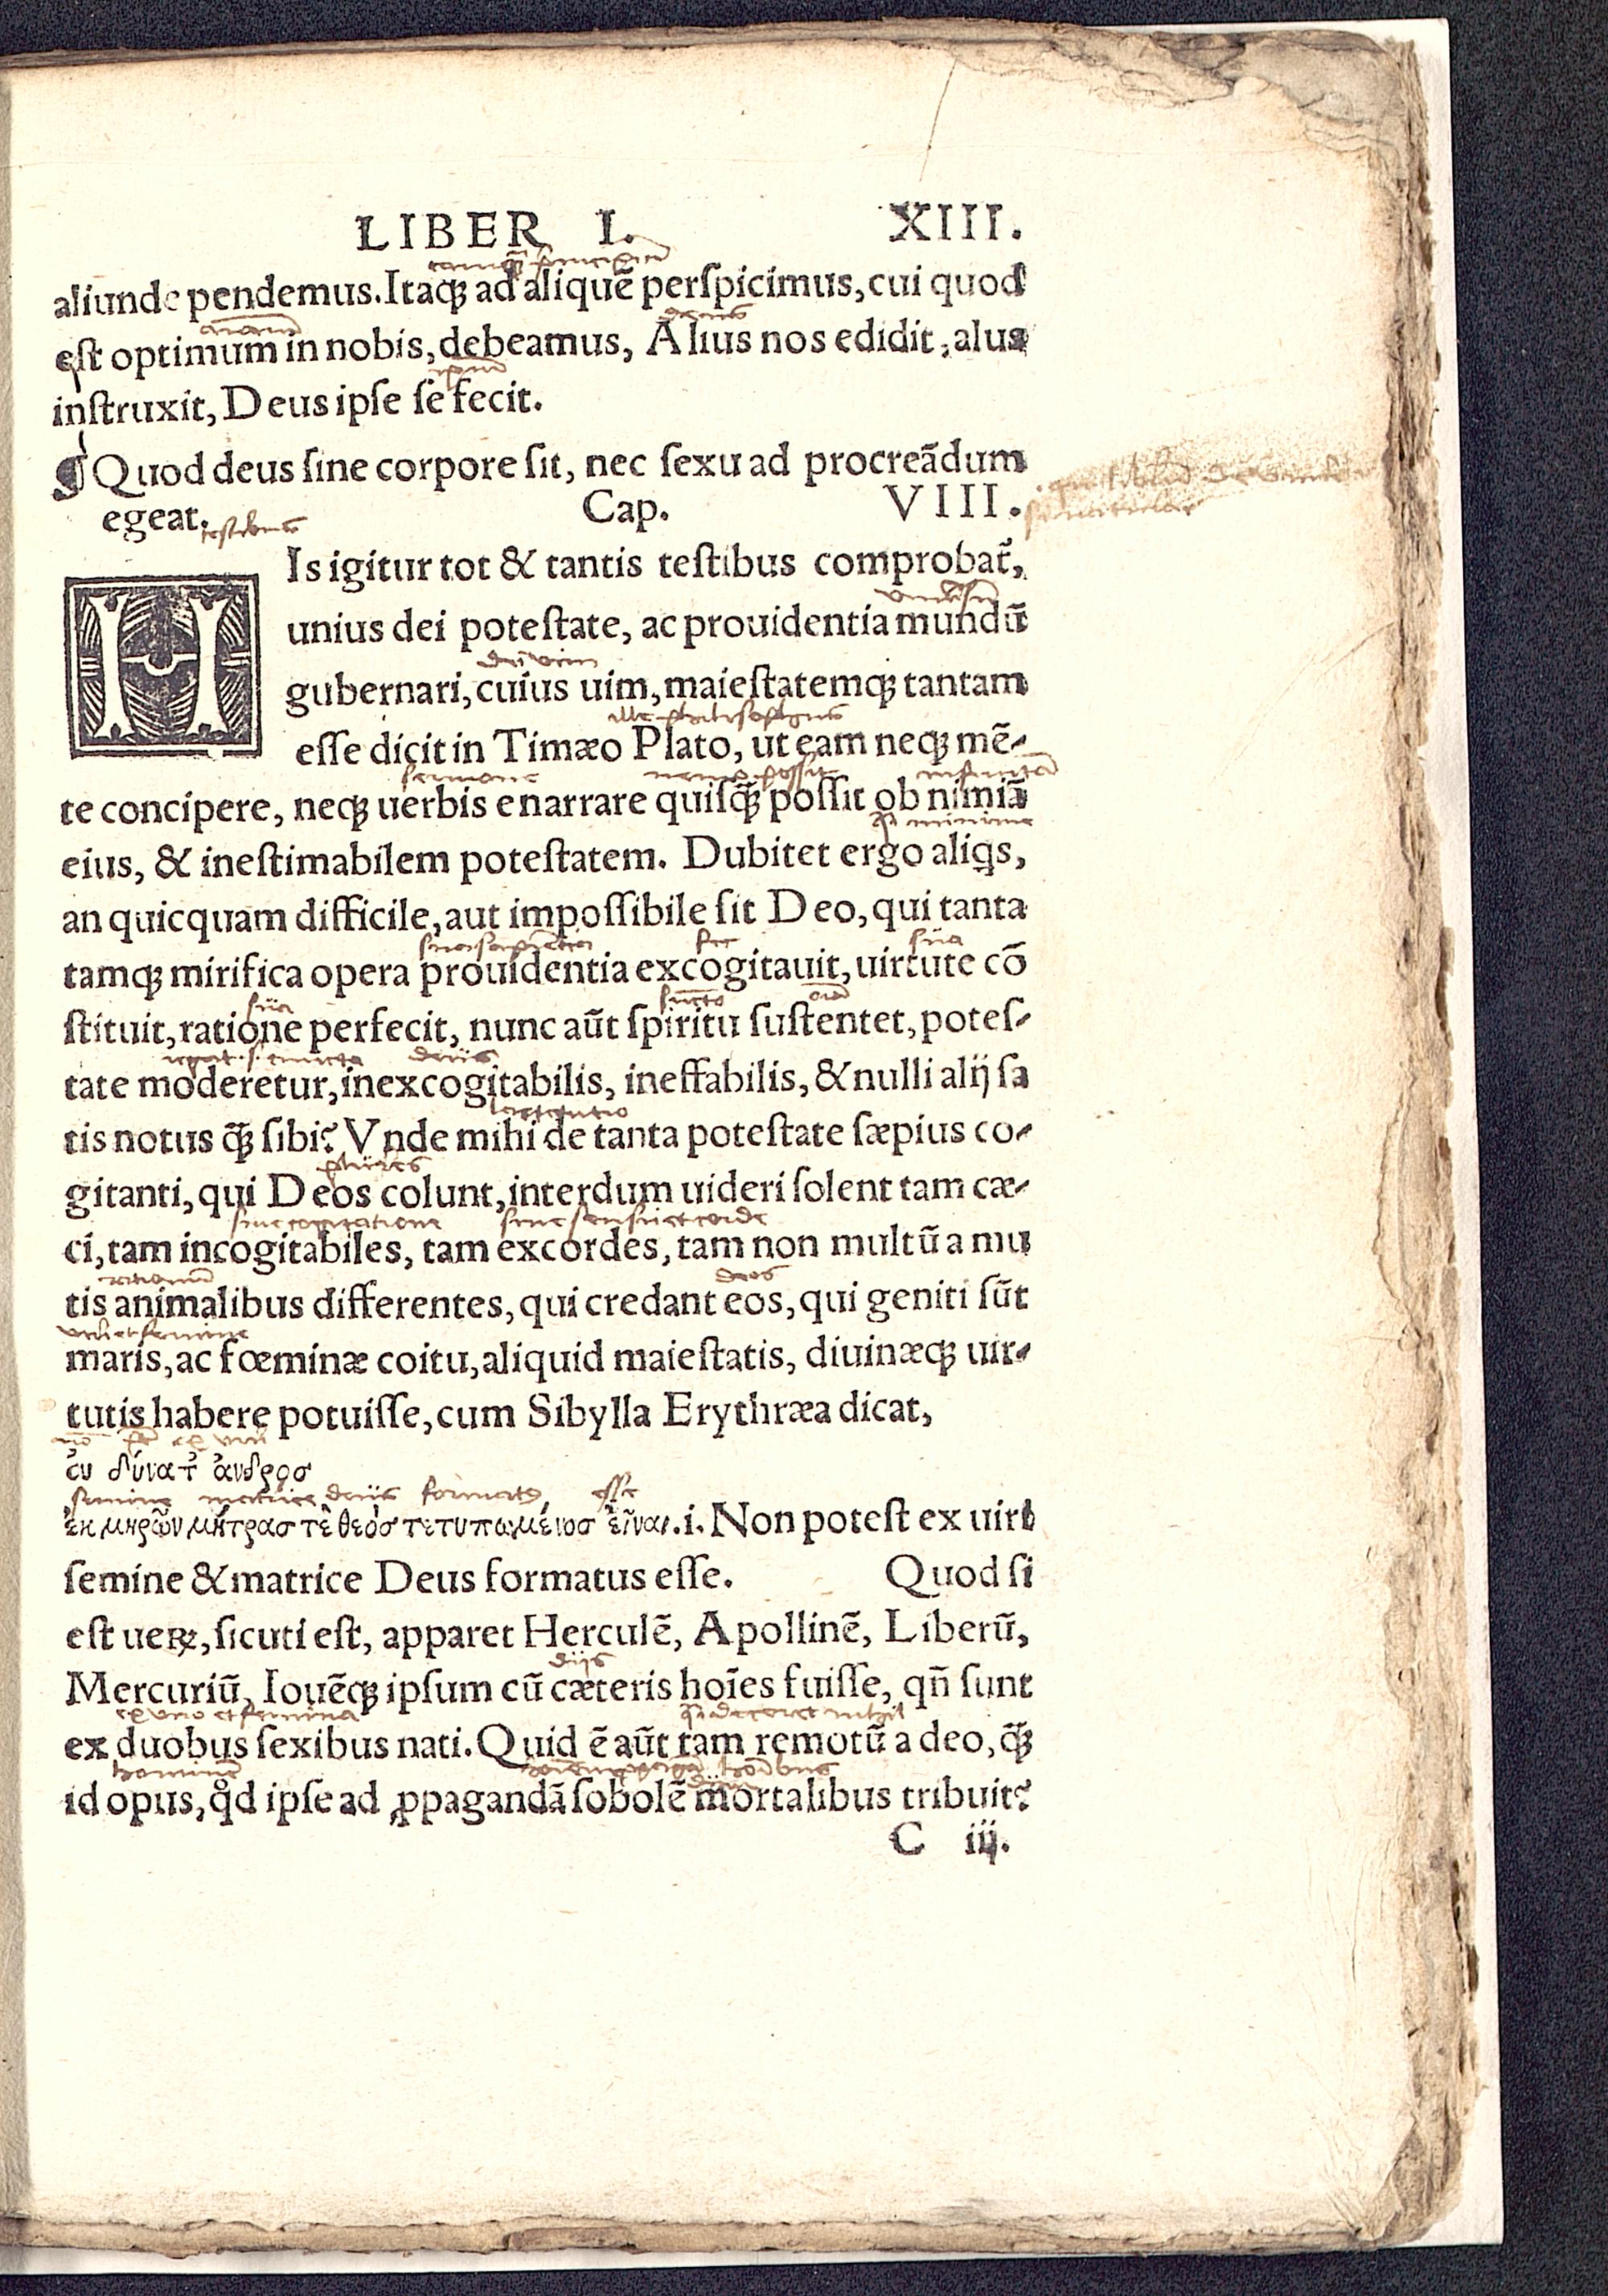 LIBER I. XIII.
aliunde pendemus. Itaqꝫ ad aliquẽ perſpicimus, cui quod
animam
eſt optimum in nobis, debeamus, Alius nos edidit, alius
inſtruxit, Deus ipſe ſe fecit.
¶ Quod deus ſine corpore ſit, nec ſexu ad procreãdum
egeat. Cap. VIII.
testibus
HIs igitur tot & tantis teſtibus comprobat̃,
unius dei poteſtate, ac prouidentia mundũ
gubernari, cuius uim, maieſtatemqꝫ tantam
ille philosophus
eſſe dicit in Timæo Plato, ut eam neqꝫ mẽ-
sermone
te concipere, neqꝫ uerbis enarrare quiſq̃ꝫ poſſit ob nimiã
eius, & ineſtimabilem poteſtatem. Dubitet ergo aliqs,
an quicquam difficile, aut impoſſibile ſit Deo, qui tanta
tamqꝫ mirifica opera prouidentia excogitauit, uirtute cõ
ſtituit, ratione perfecit, nunc aũt ſpiritu ſuſtentet, poteſ-
tate moderetur, inexcogitabilis, ineffabilis, & nulli alij ſa
tis notus q̃ꝫ ſibi? Vnde mihi de tanta poteſtate ſæpius co-
gitanti, qui Deos colunt, interdum uideri ſolent tam cæ-
sine cogitatione sine sensu et corde
ci, tam incogitabiles, tam excordes, tam non multũ a mu
deos
tis animalibus differentes, qui credant eos, qui geniti ſũt
maris, ac fœminæ coitu, aliquid maieſtatis, diuinæqꝫ uir-
tutis habere potuiſſe, cum Sibylla Erythræa dicat,
ὀυ δύνατ᾽ ἀνδροσ
semine matrice deus formatus esse
ἐκ μηρῶν μήτρασ τὲ θεόσ τετυπωμένοσ ἐῖναι. i. Non poteſt ex uiri
ſemine & matrice Deus formatus eſſe. Quod ſi
eſt ueꝝ, ſicuti eſt, apparet Herculẽ, Apollinẽ, Liberũ,
diis
Mercuriũ, Iouẽqꝫ ipſum cũ cæteris hoĩes fuiſſe, qñ ſunt
ex viro et femina
ex duobus ſexibus nati. Quid ẽ aũt tam remotũ a deo, q̃ꝫ
id opus, qd̓ ipſe ad ꝓpagandã ſobolẽ mortalibus tribuit?
C iij.